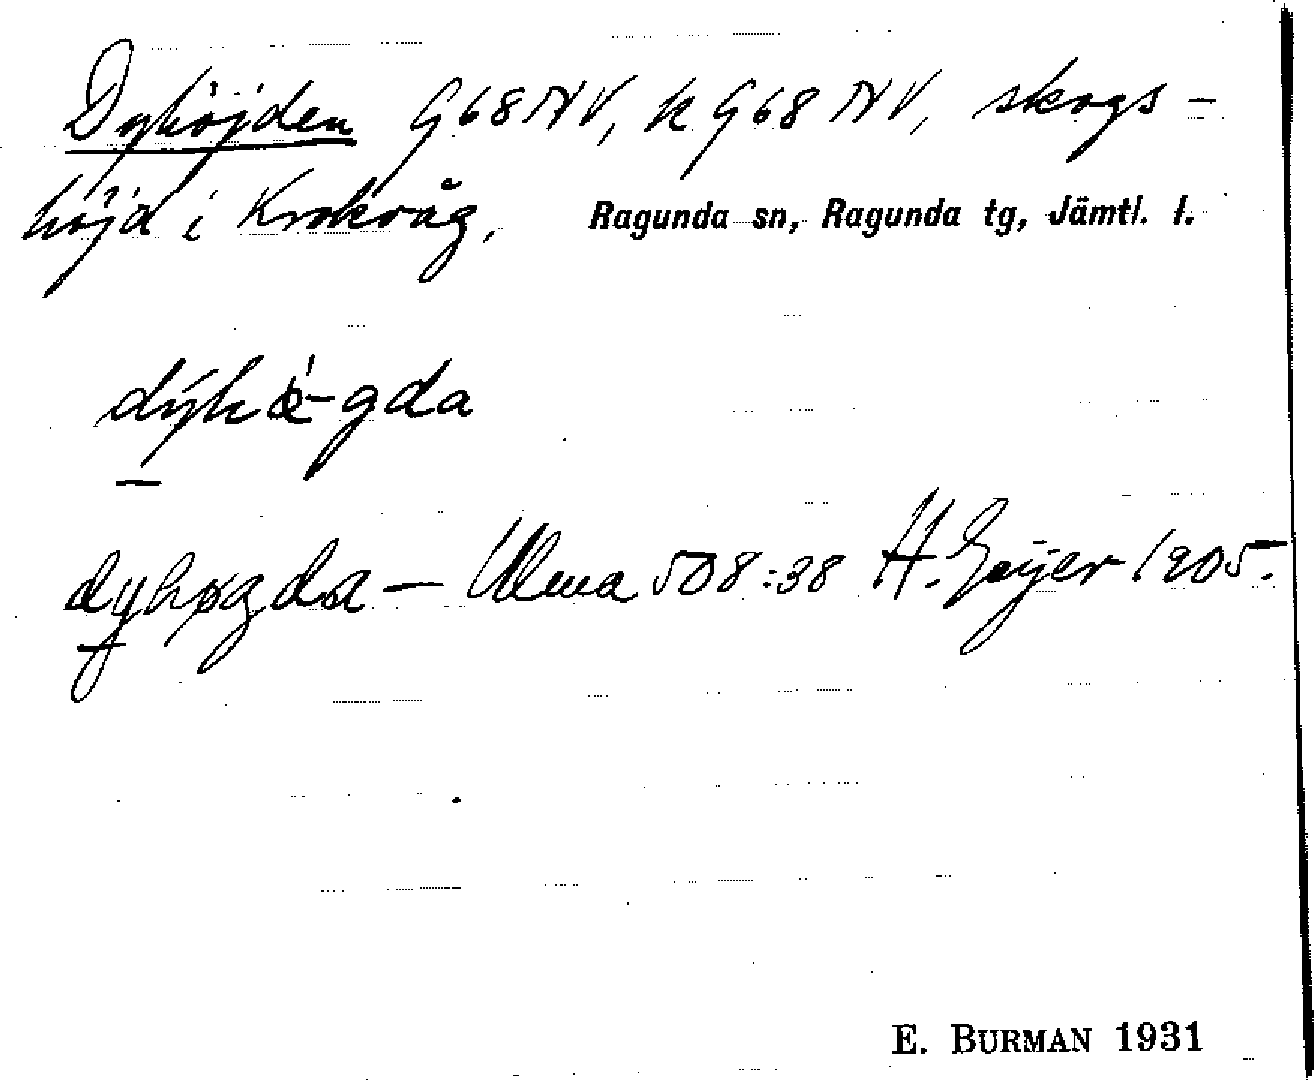 Dyhöjden G68NV, k G68 NV, skogs-
höjd i Krokvåg, Ragunda sn, Ragunda tg, Jämtl. l.
dýhö̀gda
dyhøgda — Ulma 508:38 H. Geijer 1905.
E. BURMAN 1931